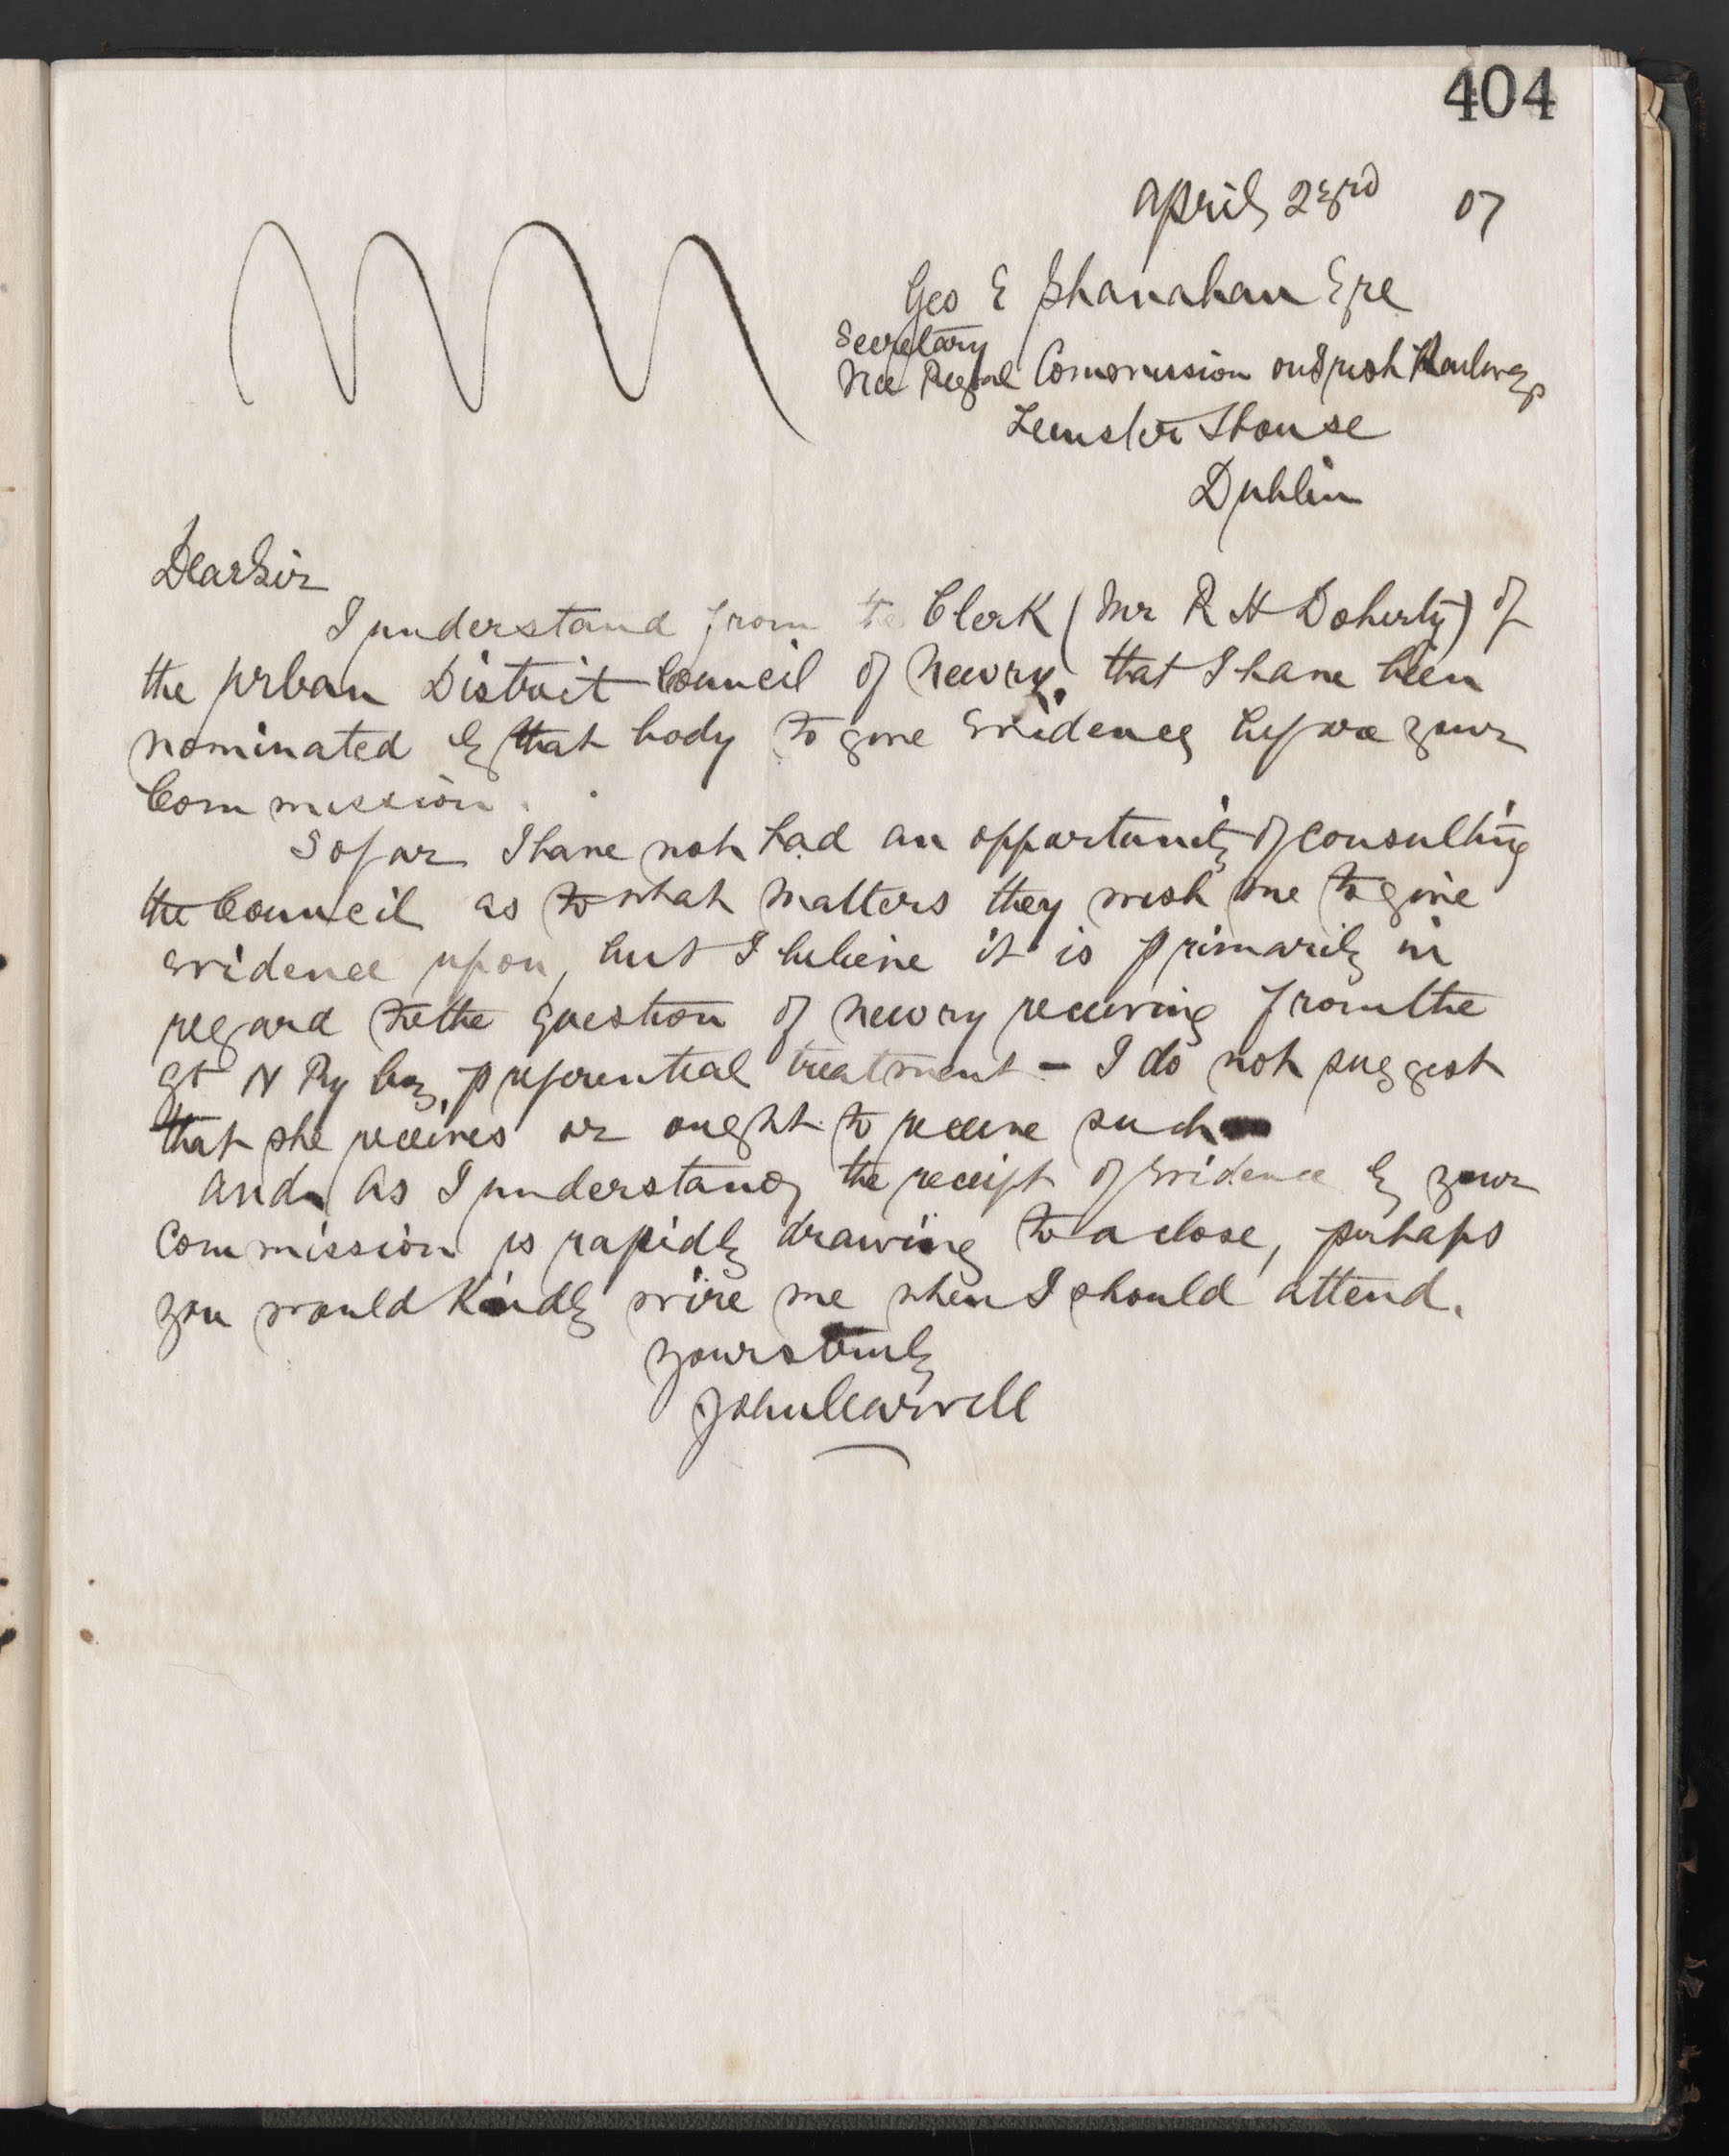 404
April 23rd 07
Geo E Shanahan Esqe
Secretary
Vice Regal Commission on Irish Railways
Leinster House
Dublin
Dear Sir
I understand from the Clerk (Mr R H Doherty) of
the Urban District Council of Newry, that I have been
nominated by that body to give evidence before your
Commission.
So far I have not had an opportunity of consulting
the Council as to what matters they wish me to give
evidence upon, but I believe it is primarily in
regard to the question of Newry receiving from the
Gt N Ry Coy, preferential treatment - I do not suggest
that she receives or ought to receive such
and as I understand the receipt of evidence by your
Commission is rapidly drawing to a close, perhaps
you would kindly wire me when I should attend.
Yours truly
John Carvill